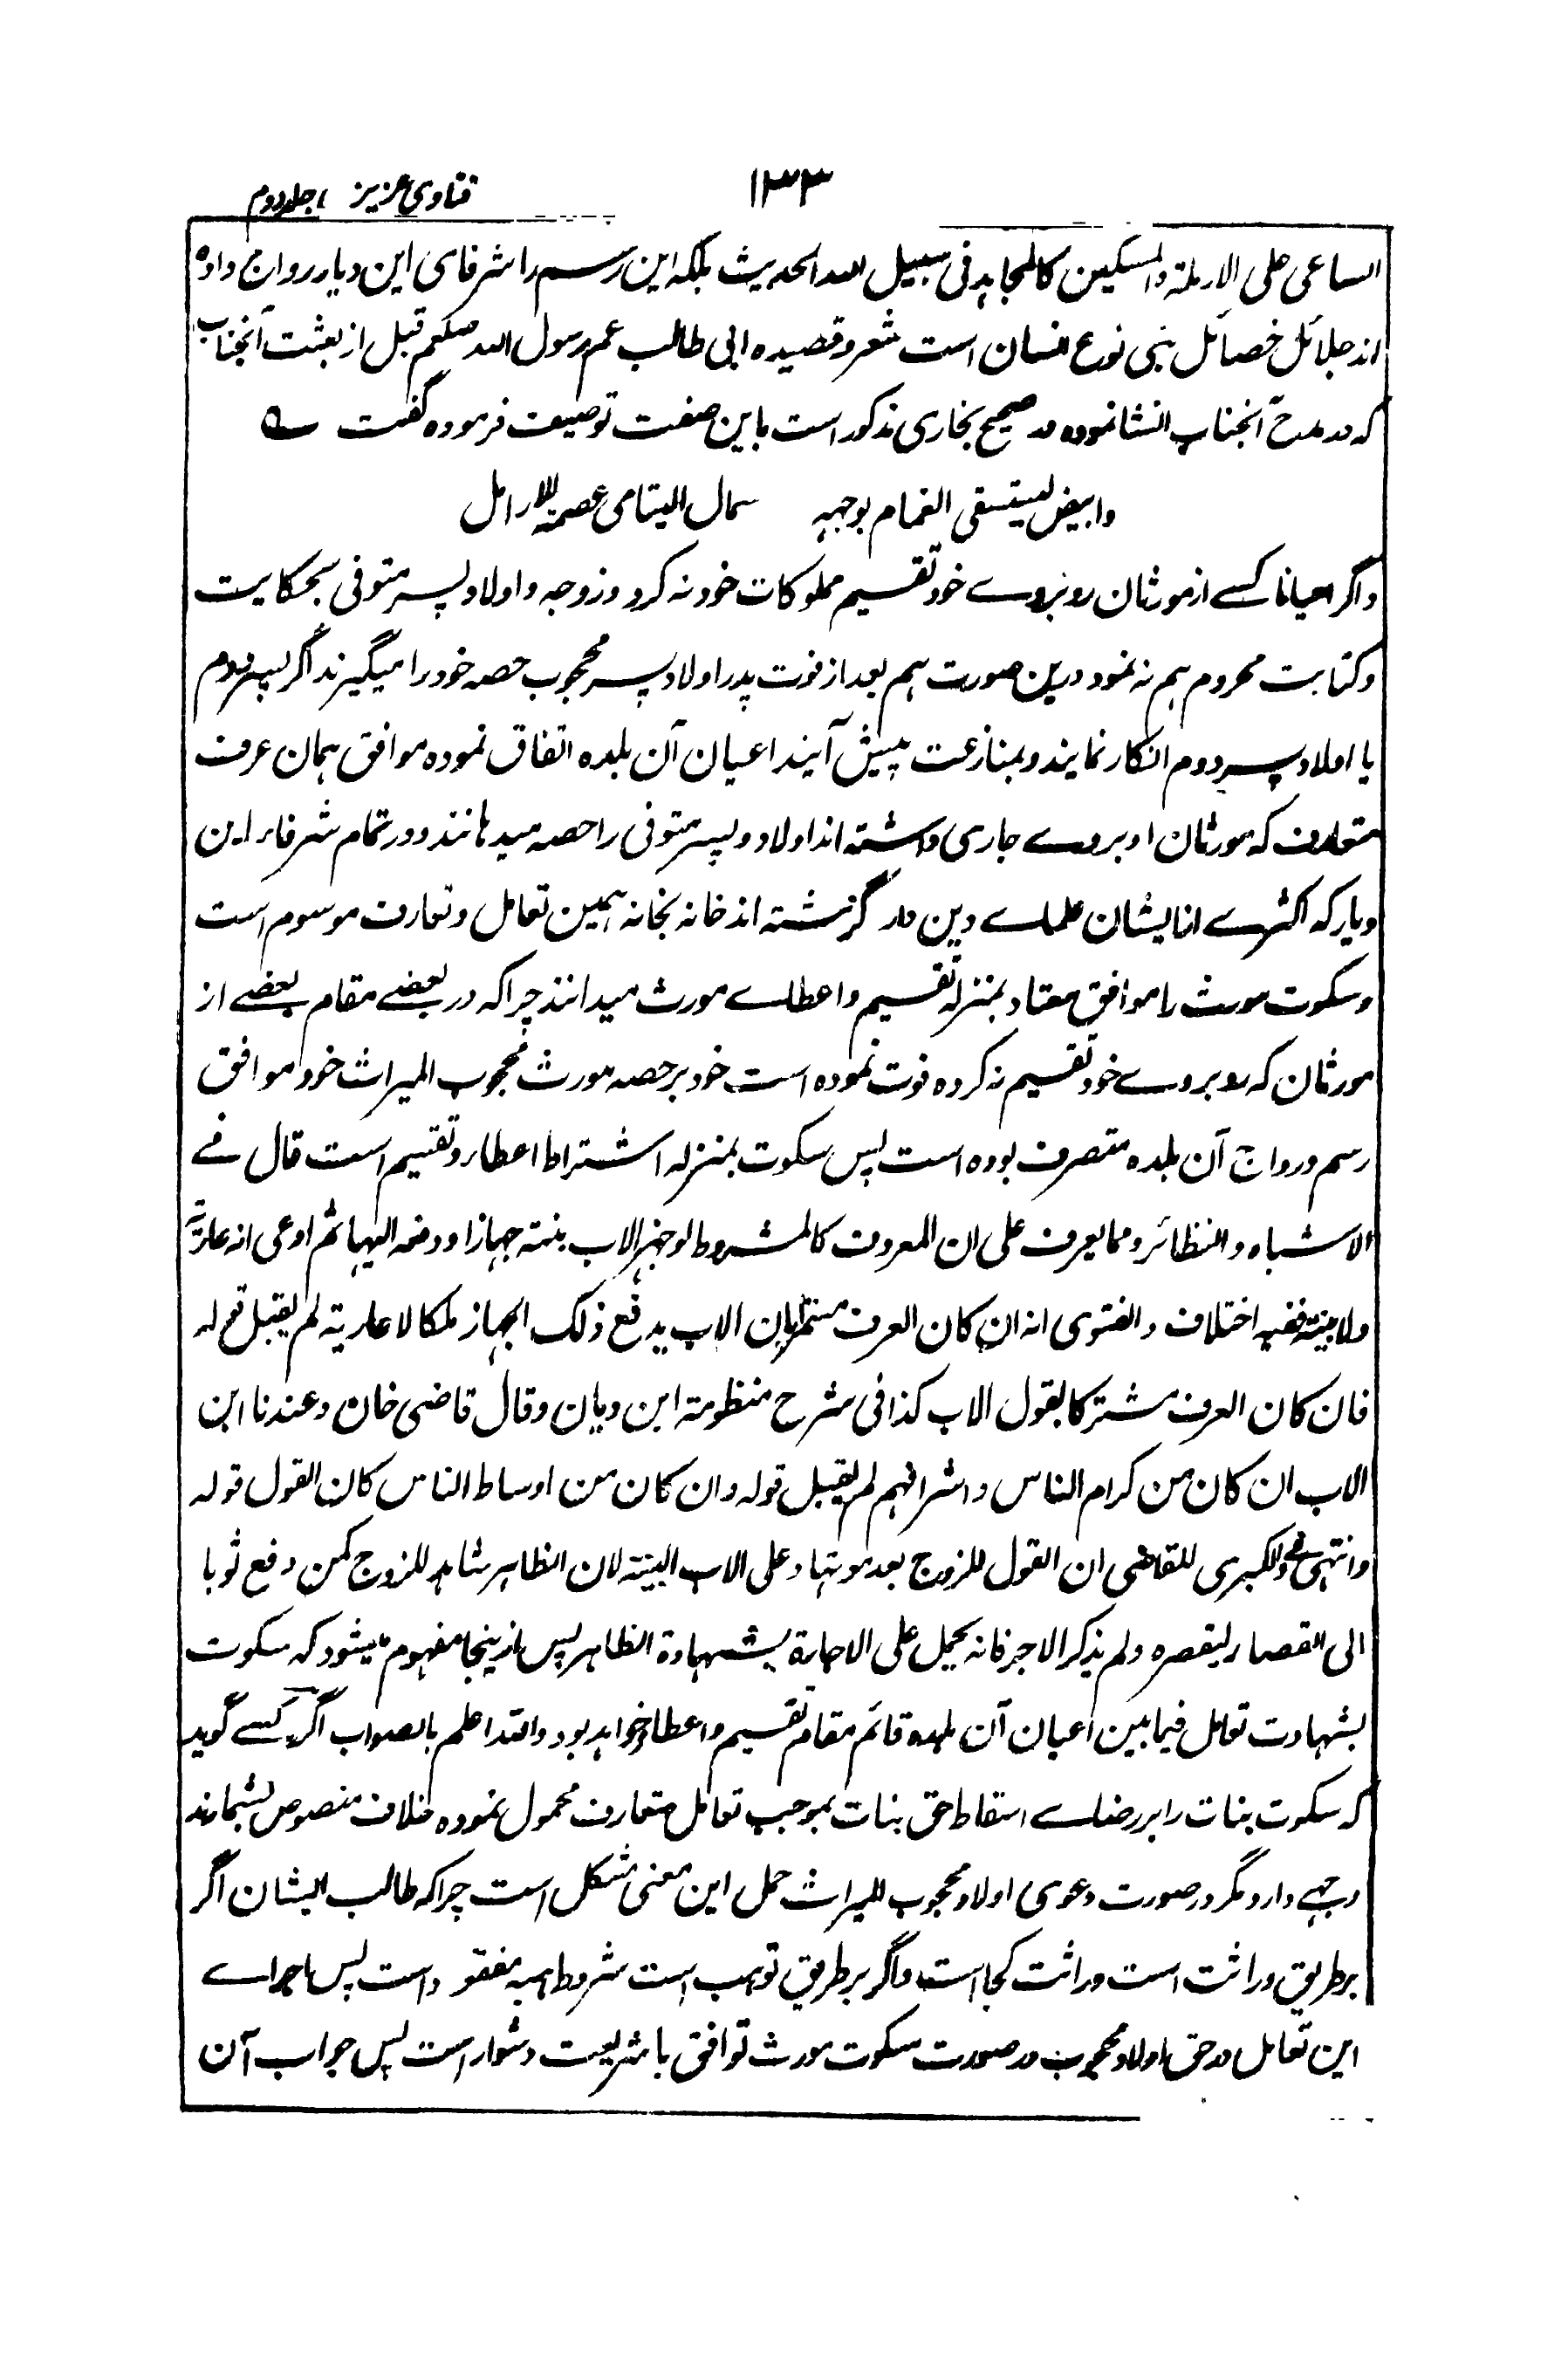 ۱۳۳ فتاوی عزیز، جلد دوم
الساعی علی الارملة والمسکین کالمجاہد فی سبیل اللہ الحدیث بلکہ این رسم را شرفای این دیار رواج دادہ
اند جلائل خصائل بنی نوع انسان است شعر و قصیدہ ابی طالب عم رسول اللہ صلعم قبل از بعثت آنجناب
کہ در مدح آنجناب انشا نمودہ در صحیح بخاری مذکور است باین صفت توصیف فرمودہ گفت ؎
وابیض یستسقی الغمام بوجہہ ثمال الیتامی عصمة للارامل
و اگر احیانا کسے از مورثان روبروے خود تقسیم مملوکات خود نہ کرد و زوجہ و اولاد پسر متوفی بحکایت
و کتابت محروم ہم نہ نمود درین صورت ہم بعد از فوت پدر اولاد پسر محجوب حصہ خود را میگیرند اگر پسر دوم
یا اولاد پسر دوم انکار نمایند و بمنازعت پیش آیند اعیان آن بلدہ اتفاق نمودہ موافق ہمان عرف
متعارف کہ مورثان او بروے جاری داشتہ اند اولاد و پسر متوفی را حصہ میدہانند و در تمام شرفاء این
دیار کہ اکثرے از ایشان علماے دین دار گزشتہ اند خانہ بخانہ ہمین تعامل و تعارف موسوم است
و سکوت مورث را موافق معتاد بمنزلہ تقسیم و اعطاے مورث میدانند چرا کہ در بعضے مقام بعضے از
مورثان کہ روبروے خود تقسیم نہ کردہ فوت نمودہ است خود بر حصہ مورث محجوب المیراث خود موافق
رسم و رواج آن بلدہ متصرف بودہ است پس سکوت بمنزلہ اشتراط اعطاء و تقسیم است قال فے
الاشباہ والنظائر ومما یعرف علی ان المعروف کالمشروط لو جہز الاب بنتہ جہازا ودفعہ الیہا ثم ادعی انہ عاریة
ولا بینة ففیہ اختلاف والفتوی انہ ان کان العرف مستمرا بان الاب یدفع ذلک الجہاز ملکا لا عاریة لم یقبل قولہ
فان کان العرف مشترکا بقول الاب کذا فی شرح منظومة ابن وہبان وقال قاضی خان وعندنا ابن
الاب ان کان من کرام الناس واشرافہم لم یقبل قولہ وان کان من اوساط الناس کان القول قولہ
وانتہی فے الکبری للقاضی ان القول للزوج بعد موتہا وعلی الاب البینة لان الظاہر شاہد للزوج کمن دفع ثوبا
الی القصار لیقصرہ ولم یذکر الاجر فانہ یحمل علی الاجارة بشہادة الظاہر پس ازینجا مفہوم میشود کہ سکوت
بشہادت تعامل فیما بین اعیان آن بلدہ قائم مقام تقسیم و اعطا خواہد بود واللہ اعلم بالصواب اگر کسے گوید
کہ سکوت بنات را بر رضاے اسقاط حق بنات بموجب تعامل متعارف محمول نمودہ خلاف منصوص بشمارند
وجہے دارد مگر در صورت دعوی اولاد محجوب للمیراث حمل این معنی مشکل است چرا کہ طالب ایشان اگر
بر طریق وراثت است وراثت کجا است و اگر بر طریق توہب است شروط ہبہ مفقود است پس اجراے
این تعامل در حق اولاد محجوب در صورت سکوت مورث توافق با شریعت دشوار است پس جواب آن